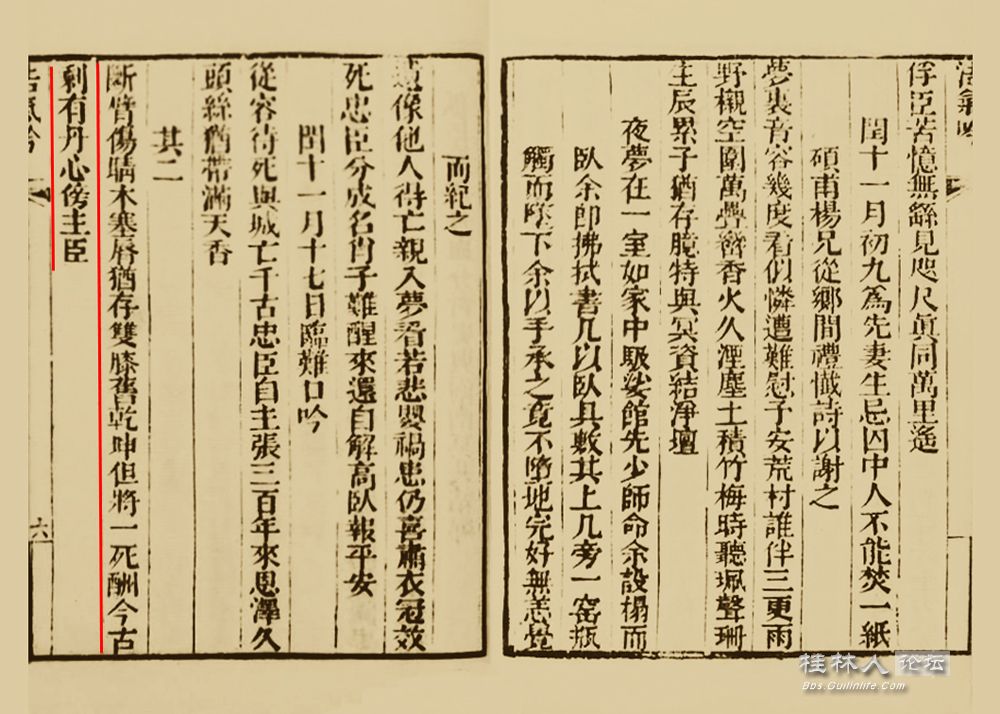 浩氣吟
俘臣苦憶無繇見咫尺眞同萬里遙
閏十一月初九爲先妻生忌囚中人不能焚一紙
碩甫楊兄從鄉間禮懺詩以謝之
夢裏音容幾度看似憐遭難慰子安荒村誰伴三更雨
野櫬空圍萬疊巒香火久湮塵土積竹梅時聽珮聲珊
主辰累子猶存臆特與冥資結淨壇
夜夢在一室如家中馺娑館先少師命余設榻而
臥余卽拂拭書几以臥具敷其上几旁一窑瓶
觸而墮下余以手承之竟不墮地完好無恙覺
而紀之
遺像他人得亡親入夢看若悲嬰禍忠仍喜肅衣冠效
死忠臣分成名肖子難醒來還自解高臥報平安
閏十一月十七日臨難口吟
從容待死與城亡千古忠臣自主張三百年來恩澤久
頭絲猶帶滿天香
其二
斷臂傷睛木塞唇猶存雙膝舊乾坤但將一死酬今古
剩有丹心傍主臣
浩氣吟
六
桂林人论坛
Bbs.Guilinlife.Com